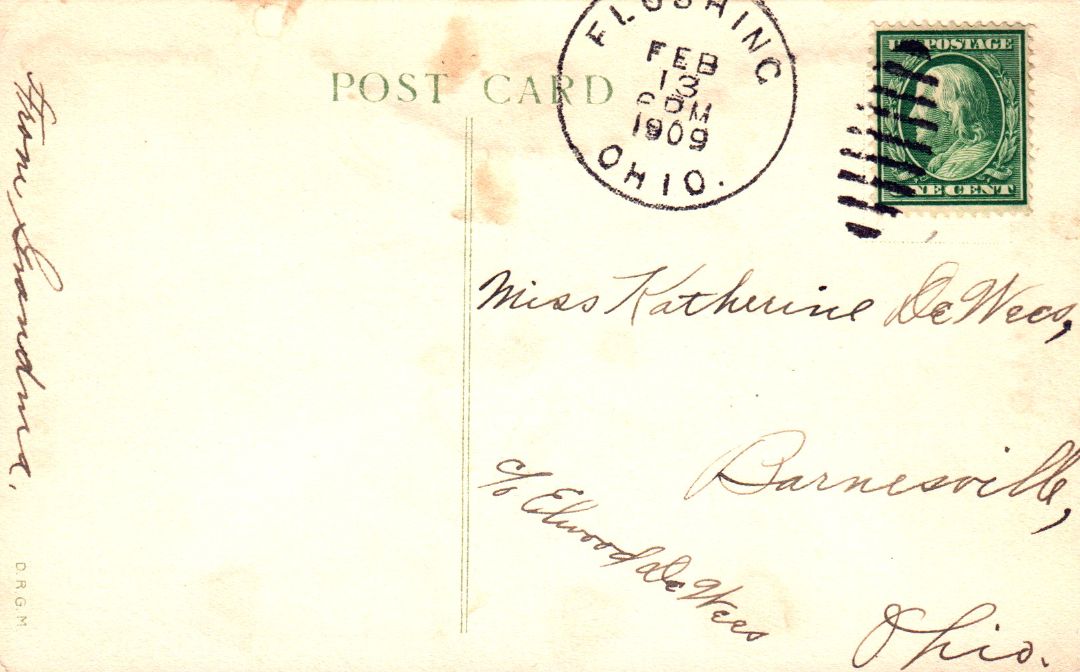 POST CARD
FLUSHING
FEB
13
PM
1909
OHIO.
U.S. POSTAGE
ONE CENT
From Grandma,
Miss Katherine DeWees,
Barnesville,
c/o Elwood DeWees
Ohio.
D.R.G.M